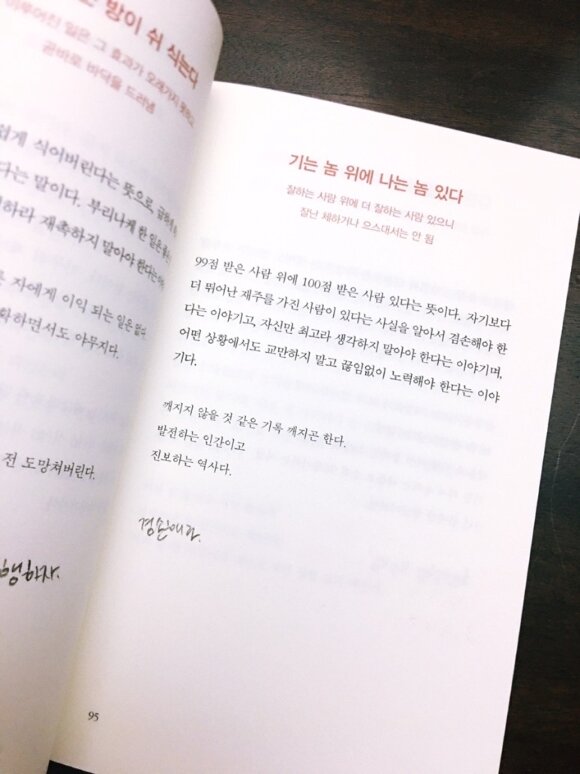 방이 쉬 식는다
이루어진 일은 그 효과가 오래가지 못하고
곧바로 바닥을 드러냄
쉽게 식어버린다는 뜻으로, 급하게
다는 말이다. 부리나케 한 일은
하라 재촉하지 말아야 한다는
자에게 이익 되는 일은 없다.
확하면서도 야무지다.
전 도망쳐버린다.
행하자.
기는 놈 위에 나는 놈 있다
잘하는 사람 위에 더 잘하는 사람 있으니
잘난 체하거나 으스대서는 안 됨
99점 받은 사람 위에 100점 받은 사람 있다는 뜻이다. 자기보다
더 뛰어난 재주를 가진 사람이 있다는 사실을 알아서 겸손해야 한
다는 이야기고, 자신만 최고라 생각하지 말아야 한다는 이야기며,
어떤 상황에서도 교만하지 말고 끊임없이 노력해야 한다는 이야
기다.
깨지지 않을 것 같은 기록 깨지곤 한다.
발전하는 인간이고
진보하는 역사다.
겸손해라.
95